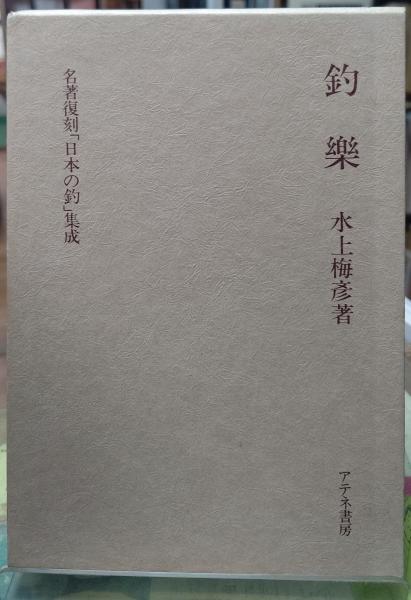 釣樂
水上梅彦著
アテネ書房
名著復刻「日本の釣」集成